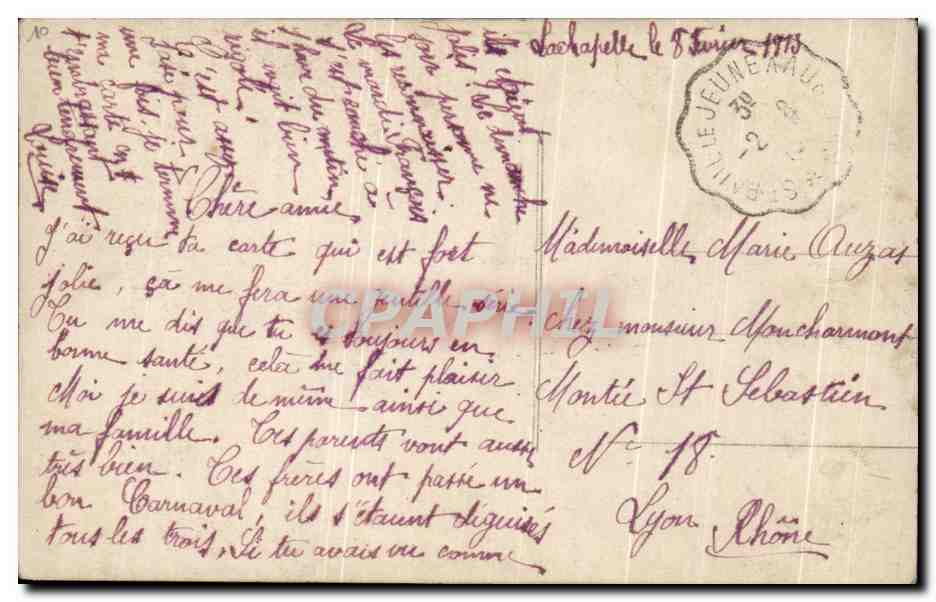 Lachapelle le 8 Février 1913
Chère amie,
J'ai reçu ta carte qui est fort
jolie, ça me fera une gentille série
Tu me dis que tu es toujours en
bonne santé, cela me fait plaisir
Moi je suis de même ainsi que
ma famille. Tes parents vont aussi
très bien. Tes frères ont passé un
bon Carnaval, ils s'étaient déguisés
tous les trois, Si tu avais vu comme
ils étaient
jolis personne ne
les reconnaissez.
Le maudit François
s'est
il avait bien
rigolé.
C'est assez
une fois, je termine
ma carte en
t'embrassant
bien tendrement
Louise
Mademoiselle Marie Auzas
chez monsieur Moncharmont
Montée St Sebastien
N° 18.
Lyon Rhône
LE JEUNE A AU
CPAPHIL
10